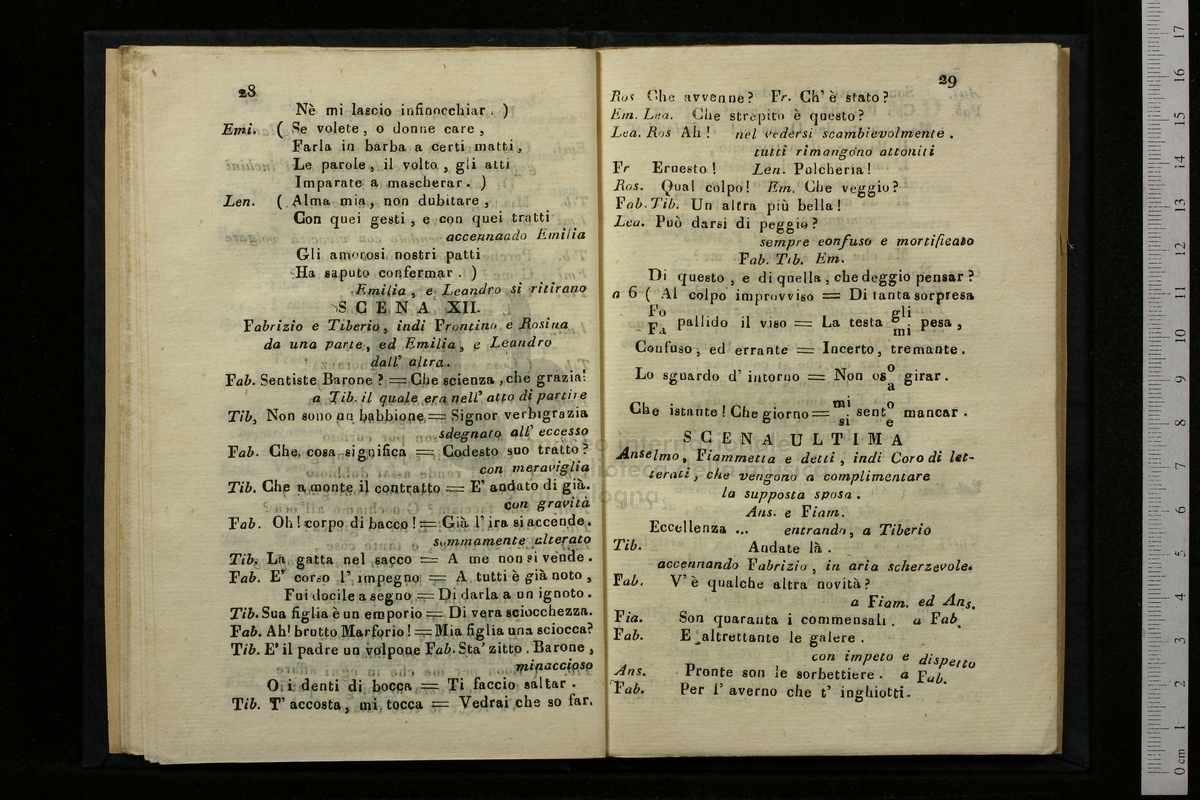 28
Nè mi lascio infinocchiar. )
Emi. ( Se volete, o donne care,
Farla in barba a certi matti,
Le parole, il volto, gli atti
Imparate a mascherar. )
Len. ( Alma mia, non dubitare,
Con quei gesti, e con quei tratti
accennando Emilia
Gli amorosi nostri patti
Ha saputo confermar. )
Emilia, e Leandro si ritirano
SCENA XII.
Fabrizio e Tiberio, indi Frontino e Rosina
da una parte, ed Emilia, e Leandro
dall' altra.
Fab. Sentiste Barone? = Che scienza, che grazia!
a Tib. il quale era nell' atto di partire
Tib, Non sono un babbione = Signor verbigrazia
sdegnato all' eccesso
Fab. Che, cosa significa = Codesto suo tratto?
con meraviglia
Tib. Che a monte il contratto = E' andato di già.
con gravità
Fab. Oh! corpo di bacco! = Già l' ira si accende.
sommamente alterato
Tib. La gatta nel sacco = A me non si vende.
Fab. E' corso l' impegno = A tutti è già noto,
Fui docile a segno = Di darla a un ignoto.
Tib. Sua figlia è un emporio = Di vera sciocchezza.
Fab. Ah! brutto Marforio! = Mia figlia una sciocca?
Tib. E' il padre un volpone Fab. Sta' zitto. Barone,
minaccioso
O i denti di bocca = Ti faccio saltar.
Tib. T' accosta, mi tocca = Vedrai che so far.
29
Ros Che avvenne? Fr. Ch' è stato?
Em. Lea. Che strepito è questo?
Lea. Ros Ah! nel vedersi scambievolmente.
tutti rimangono attoniti
Fr Ernesto! Len. Pulcheria!
Ros. Qual colpo! Em. Che veggio?
Fab. Tib. Un altra più bella!
Lea. Può darsi di peggio?
sempre confuso e mortificato
Fab. Tib. Em.
Di questo, e di quella, che deggio pensar?
a 6 ( Al colpo improvviso = Di tanta sorpresa
Fo gli
Fa pallido il viso = La testa mi pesa,
Confuso, ed errante = Incerto, tremante.
Lo sguardo d' intorno = Non oso girar.
a
Che istante! Che giorno = mi sento mancar.
si e
SCENA ULTIMA
Anselmo, Fiammetta e detti, indi Coro di let-
terati, che vengono a complimentare
la supposta sposa.
Ans. e Fiam.
Eccellenza ... entrando, a Tiberio
Tib. Andate là.
accennando Fabrizio, in aria scherzevole.
Fab. V' è qualche altra novità?
a Fiam. ed Ans.
Fia. Son quaranta i commensali. a Fab.
Fab. E altrettante le galere.
con impeto e dispetto
Ans. Pronte son le sorbettiere. a Fab.
Fab. Per l' averno che t' inghiotti.
museo internazionale
e biblioteca della musica
bologna
0 cm 1 2 3 4 5 6 7 8 9 10 11 12 13 14 15 16 17